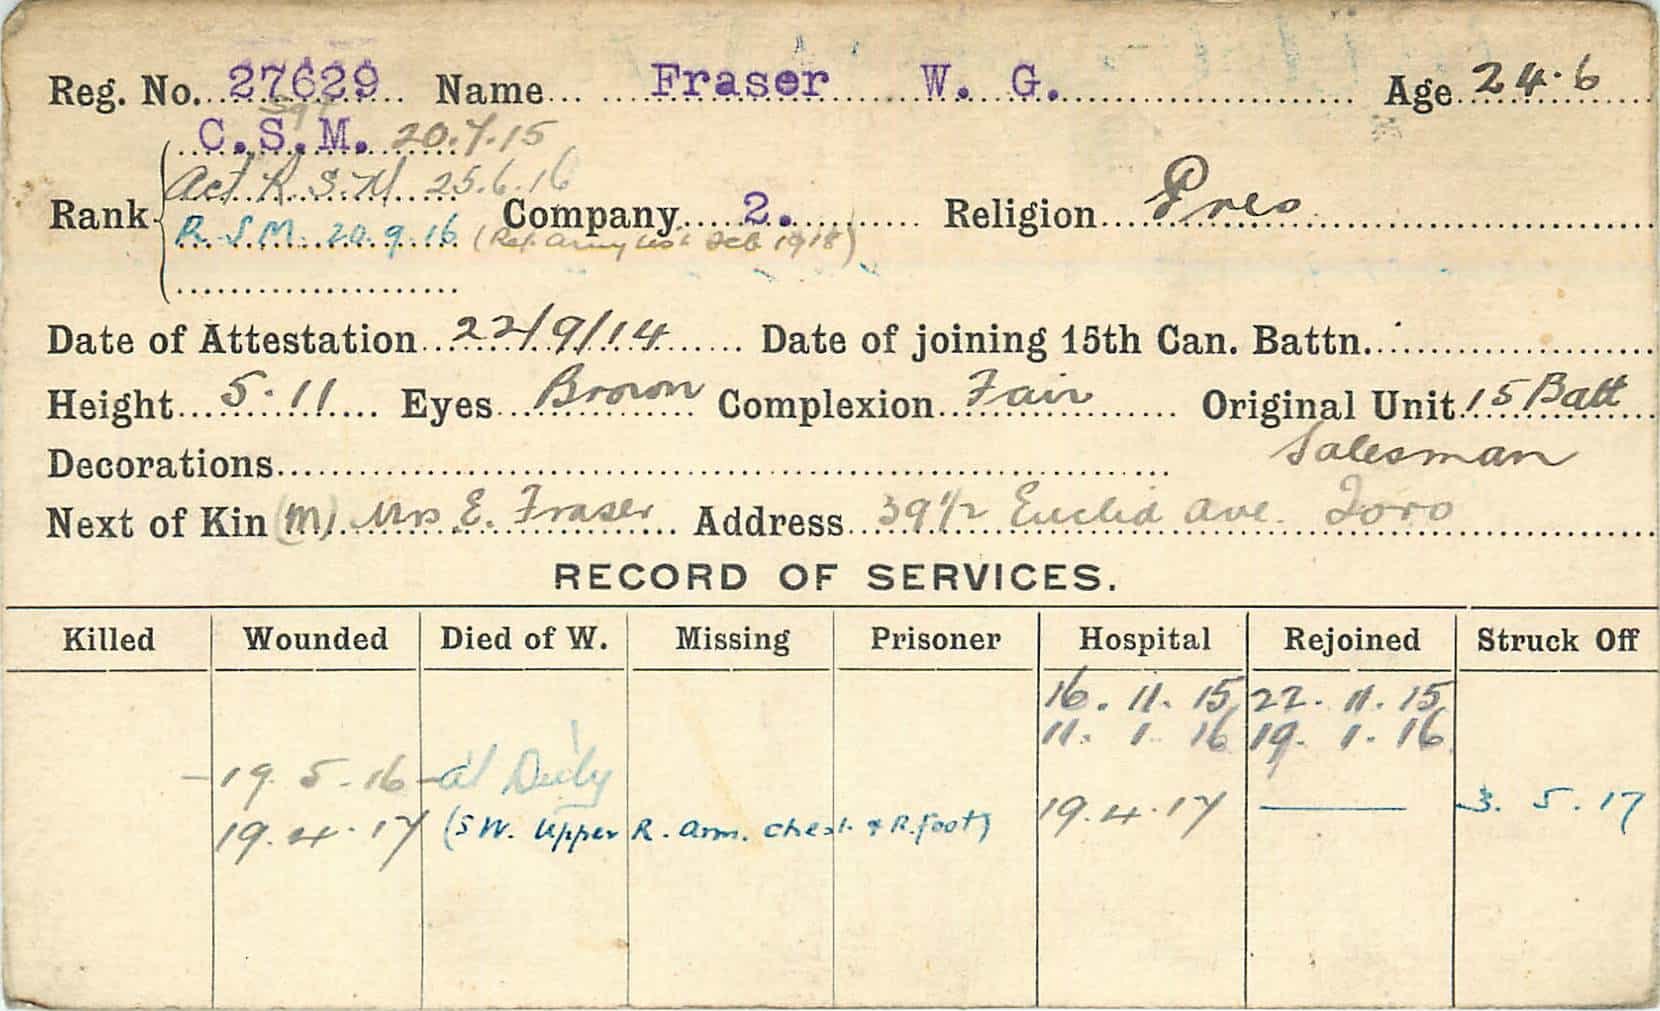 Reg. No. 27629 Name Fraser W. G. Age 24.6
C.S.M. 20.7.15
Act. R.S.M. 25.6.16
Rank R.S.M. 20.9.16 Company 2. Religion Pres
(Ref. Army List Feb 1918)
Date of Attestation 22/9/14 Date of joining 15th Can. Battn.
Height 5.11 Eyes Brown Complexion Fair Original Unit 15 Batt
Decorations Salesman
Next of Kin (m) Mrs E. Fraser Address 39 1/2 Euclid Ave. Toro
RECORD OF SERVICES.
Killed Wounded Died of W. Missing Prisoner Hospital Rejoined Struck Off
16. 11. 15 22. 11. 15
11. 1. 16 19. 1. 16
-19. 5. 16- at Duty
19.4.17 (SW. Upper R. arm. chest. & R. foot) 19.4.17 — 3. 5. 17